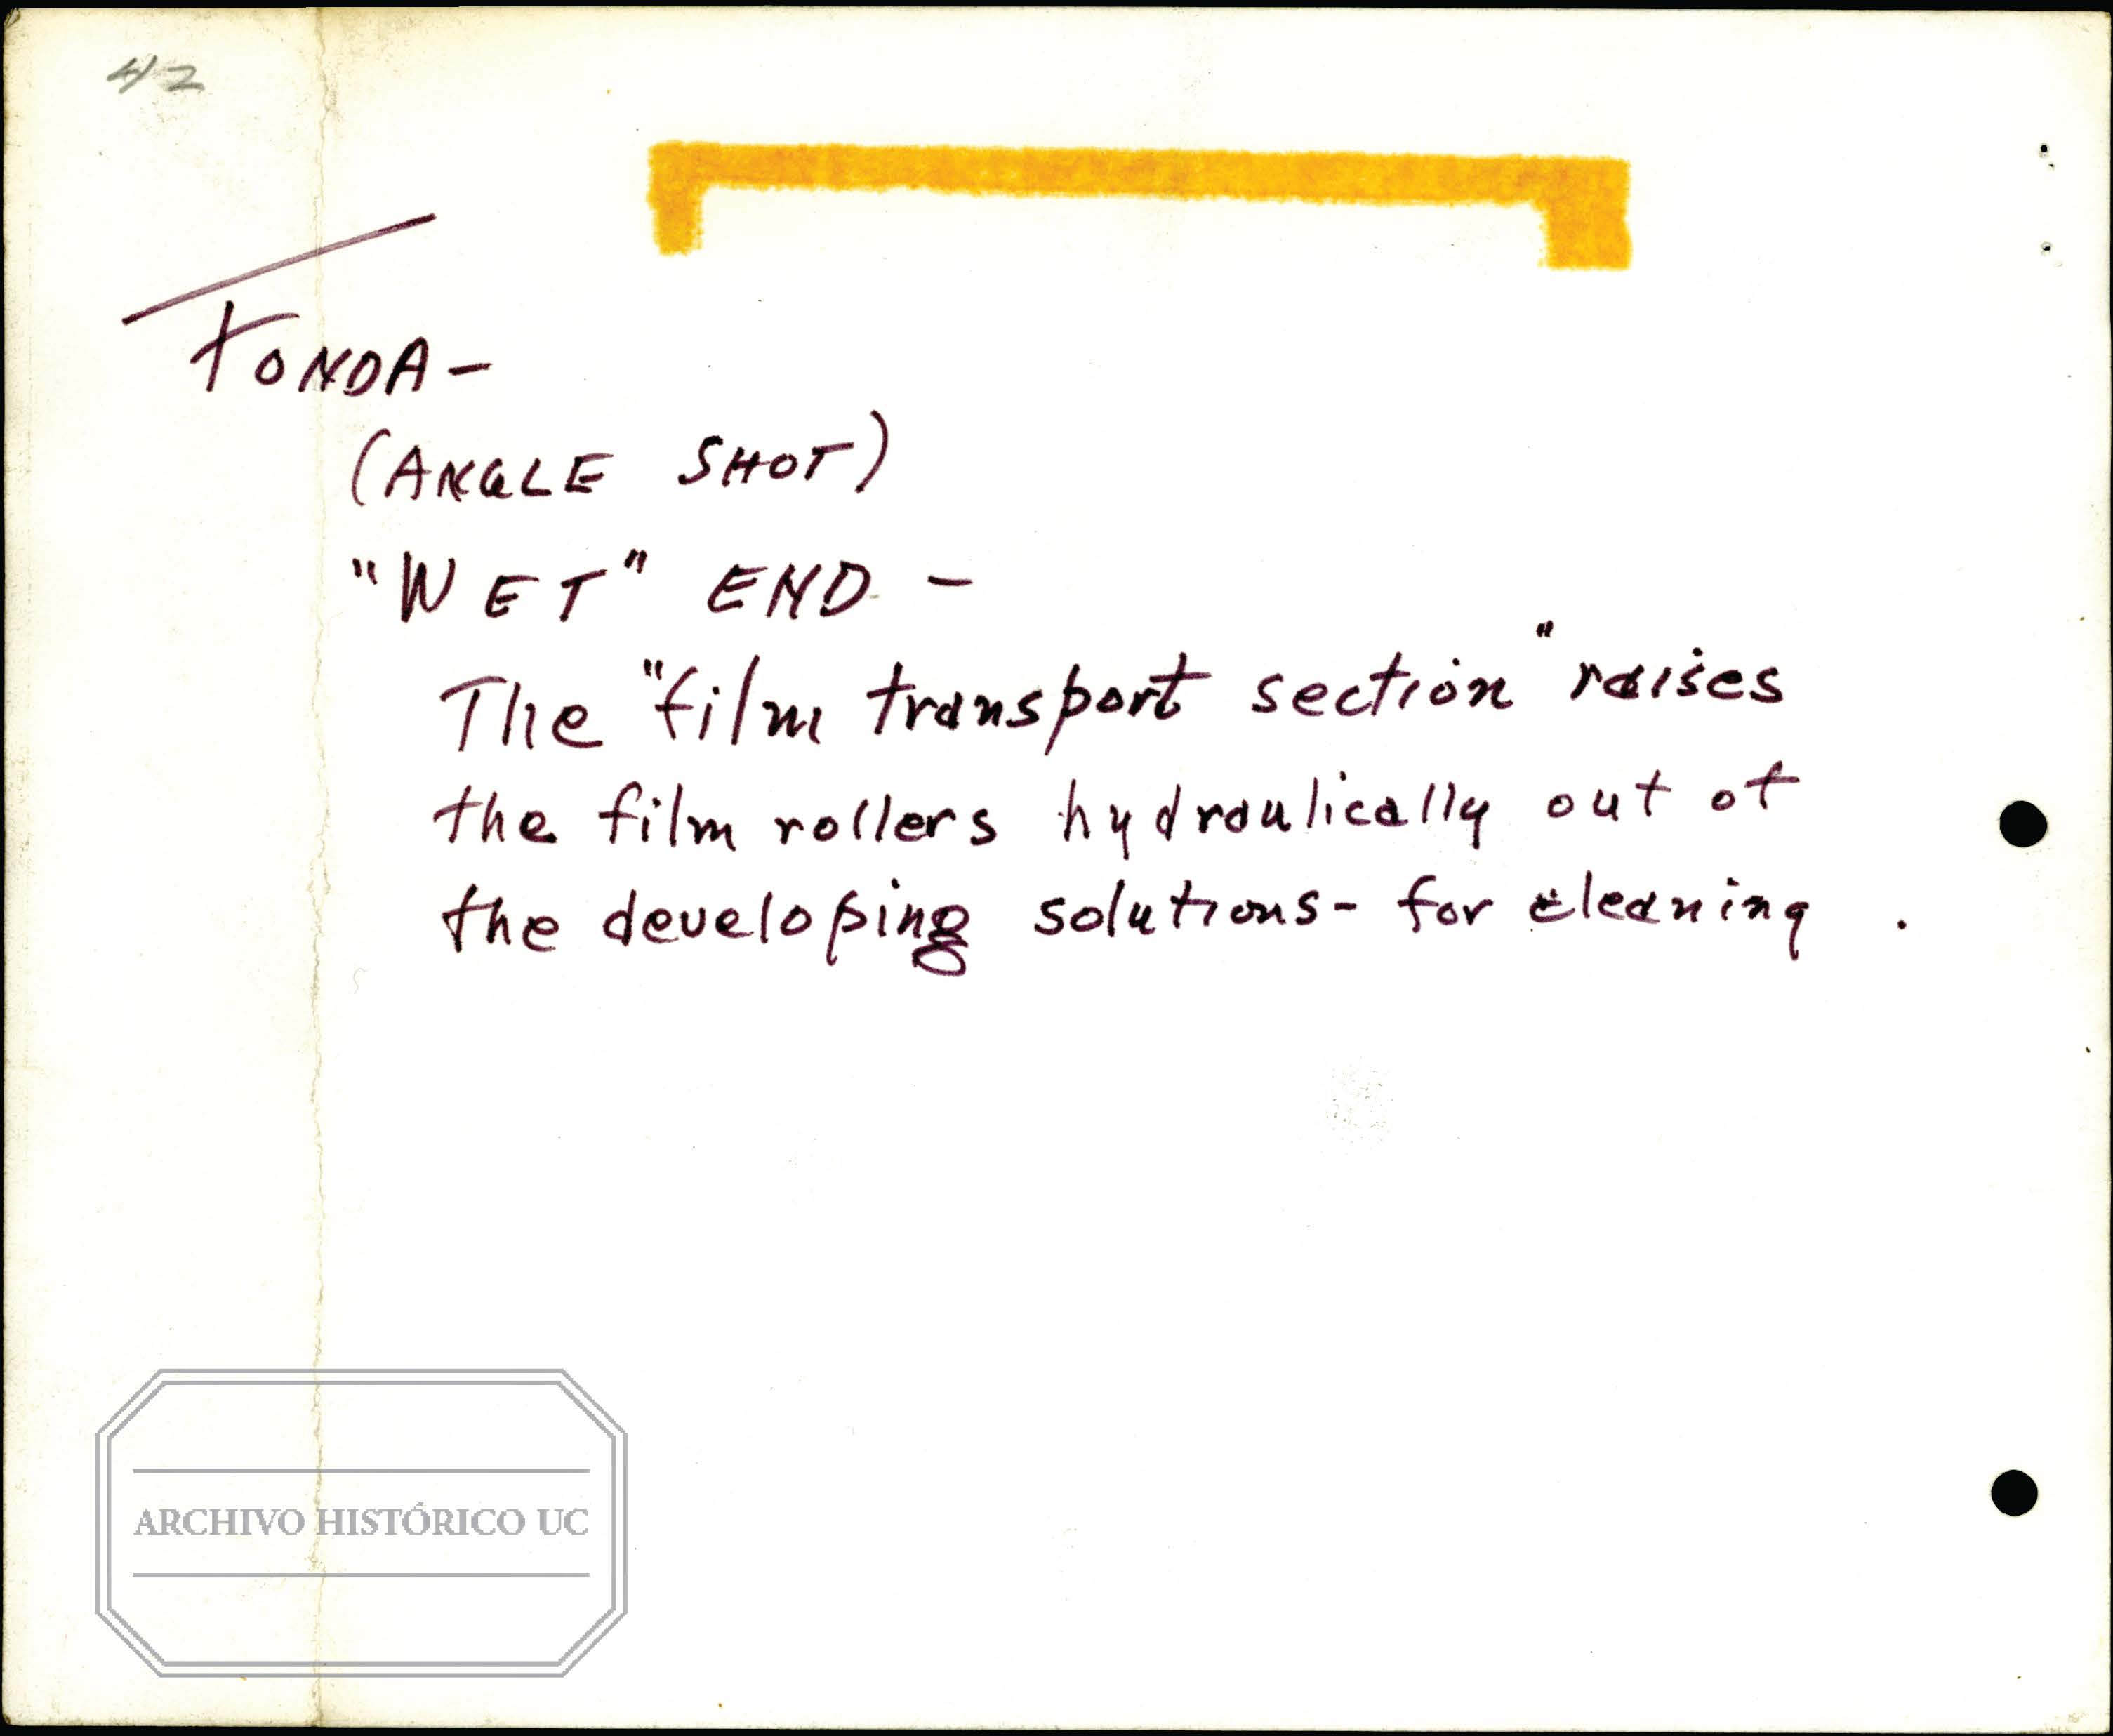 42
FONDA-
(ANGLE SHOT)
"WET" END -
The "film transport section" raises
the film rollers hydraulically out of
the developing solutions- for cleaning .
ARCHIVO HISTÓRICO UC